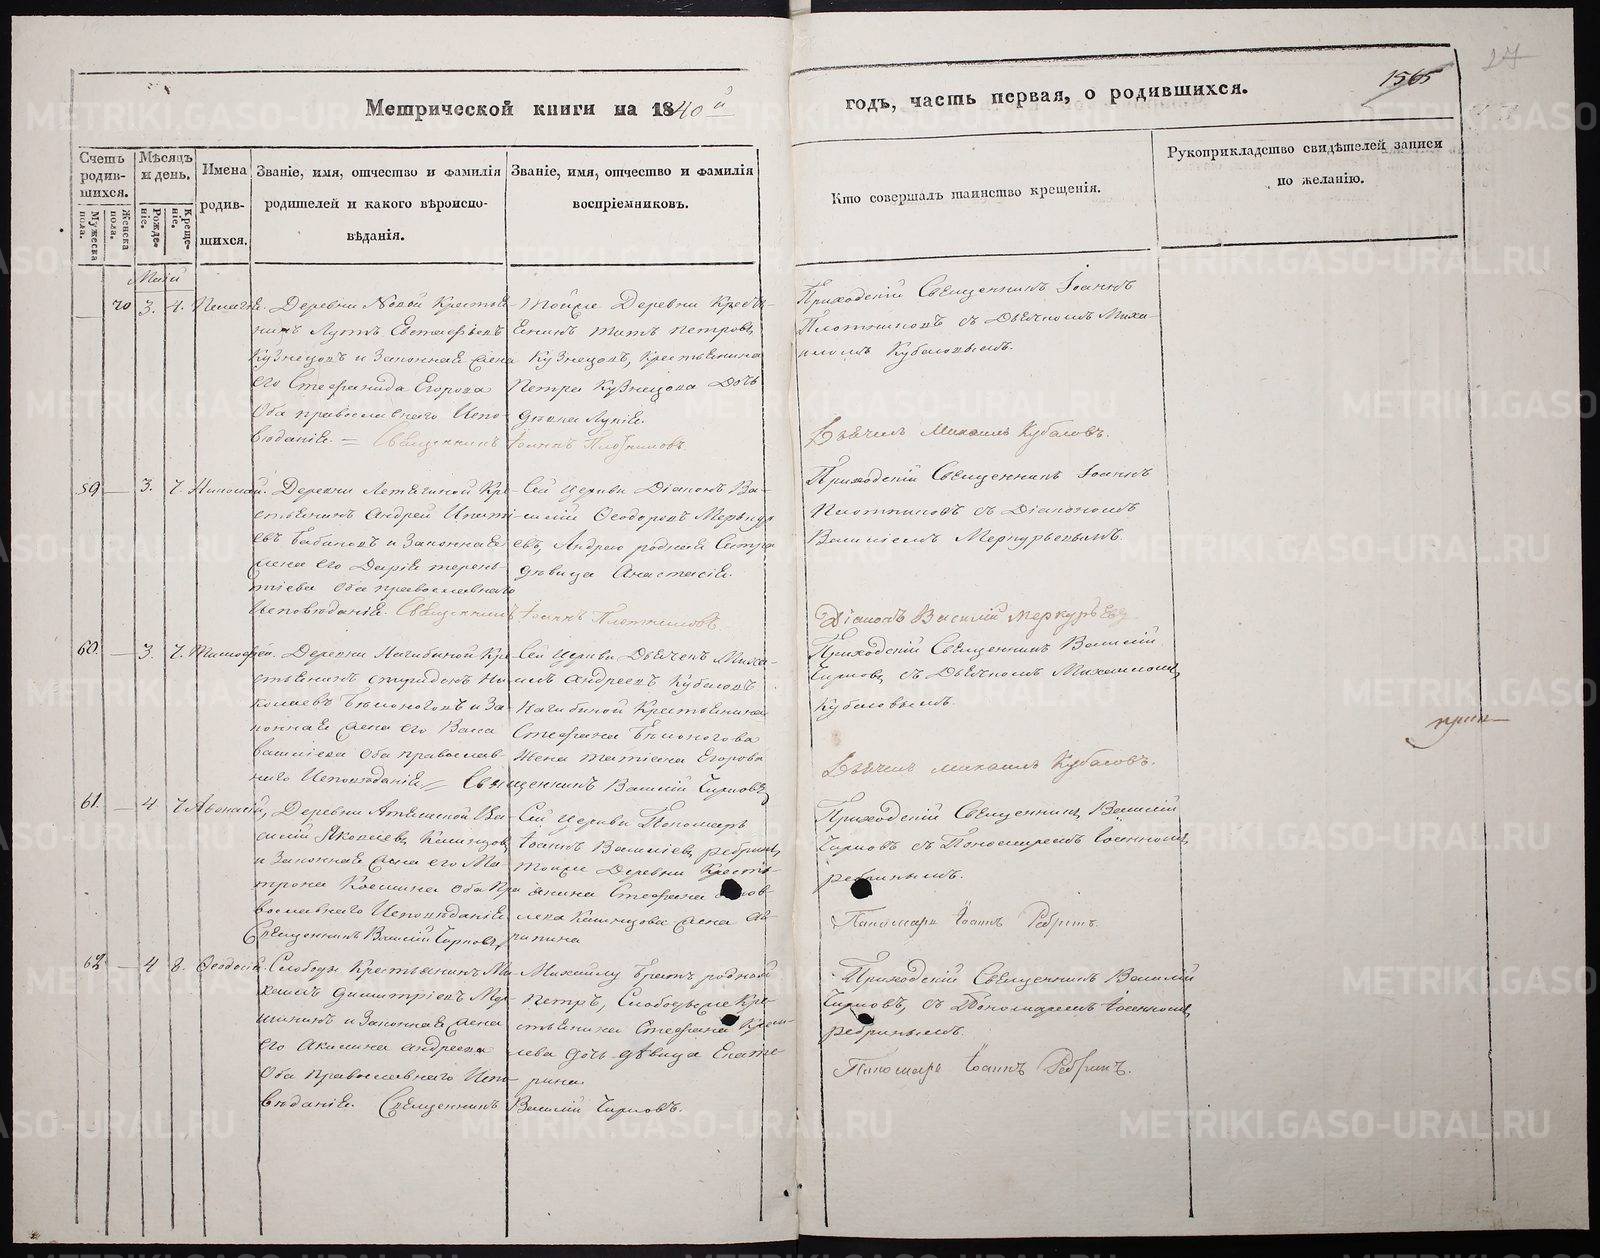 Метрической книги на 1840й
годъ, часть первая, о родившихся.
1565
27
Счетъ родив-шихся.
Мужеска пола.
Женска пола.
Мѣсяцъ и день.
Рожде-ніе.
Креще-ніе.
Имена родив-шихся.
Званіе, имя, отчество и фамилія
родителей и какого вѣроиспо-
вѣданія.
Званіе, имя, отчество и фамилія
воспріемниковъ.
Кто совершалъ таинство крещенія.
Рукоприкладство свидѣтелей записи
по желанію.
Маій
70 3. 4. Пелагія.
Деревни Новой Крестья-
нинъ Евстафіевъ
Кузнецовъ и Законная жена
его Стефанида Егорова
Оба православнаго Испо-
вѣданія. = Священникъ Іоаннъ Плотниковъ.
Тойже Деревни Кресть-
янинъ Титъ Петровъ
Кузнецовъ, Крестьянина
Петра Кузнецова Дочь
дѣвка Лукія.
Приходскій Священникъ Іоаннъ
Плотниковъ съ Дьячкомъ Миха-
иломъ Кубасовымъ.
Дьячекъ Михаилъ Кубасовъ.
59 3. 7. Николай.
Деревни Кре-
стьянинъ Андрей
Бабиновъ и Законная
жена его Дарія Терень-
тіева Оба православнаго
Исповѣданія. Священникъ Іоаннъ Плотниковъ.
Сей Церкви Діаконъ Ва-
силій Феодоровъ Меркурь-
евъ, Андрею родная Сестра
дѣвица Анастасія.
Приходскій Священникъ Іоаннъ
Плотниковъ съ Діакономъ
Василіемъ Меркурьевымъ.
Діаконъ Василій Меркурьевъ
60. 3. 7. Тимофей.
Деревни Нагибиной Кре-
стьянинъ Ни-
колаевъ Бѣлоноговъ и За-
конная жена его Васса
Василіева Оба православ-
наго Исповѣданія // Священникъ Василій Чирковъ
Сей Церкви Дьячекъ Миха-
илъ Андреевъ Кубасовъ
Нагибиной Крестьянина
Стефана Бѣлоногова
Жена Татіана Егорова
Приходскій Священникъ Василій
Чирковъ, съ Дьячкомъ Михаиломъ
Кубасовымъ.
Дьячекъ Михаилъ Кубасовъ.
61. 4 7 Афанасій,
Деревни Ва-
силій Яковлевъ
и Законная жена его Ма-
трона Козмина Оба Пра-
вославнаго Исповѣданія
Священникъ Василій Чирковъ,
Сей Церкви Пономарь
Іоаннъ Василіевъ Ребринъ,
Тойже Деревни Кресть-
янина Стефана
жена
Приходскій Священникъ Василій
Чирковъ съ Пономаремъ Іоанномъ
Ребринымъ.
Пономарь Іоаннъ Ребринъ.
62 4 8. Феодосій.
Слободы Крестьянинъ Ми-
хаилъ Димитріевъ
и Законная жена
его Акилина Андреева
Оба Православнаго Испо-
вѣданія. Священникъ Василій Чирковъ.
Михаилу Братъ родной
Петръ, Кре-
стьянина Стефана
дочь дѣвица Екате-
рина.
Приходскій Священникъ Василій
Чирковъ, съ Пономаремъ Іоанномъ
Ребринымъ.
Пономарь Іоаннъ Ребринъ.
METRIKI.GASO-URAL.RU